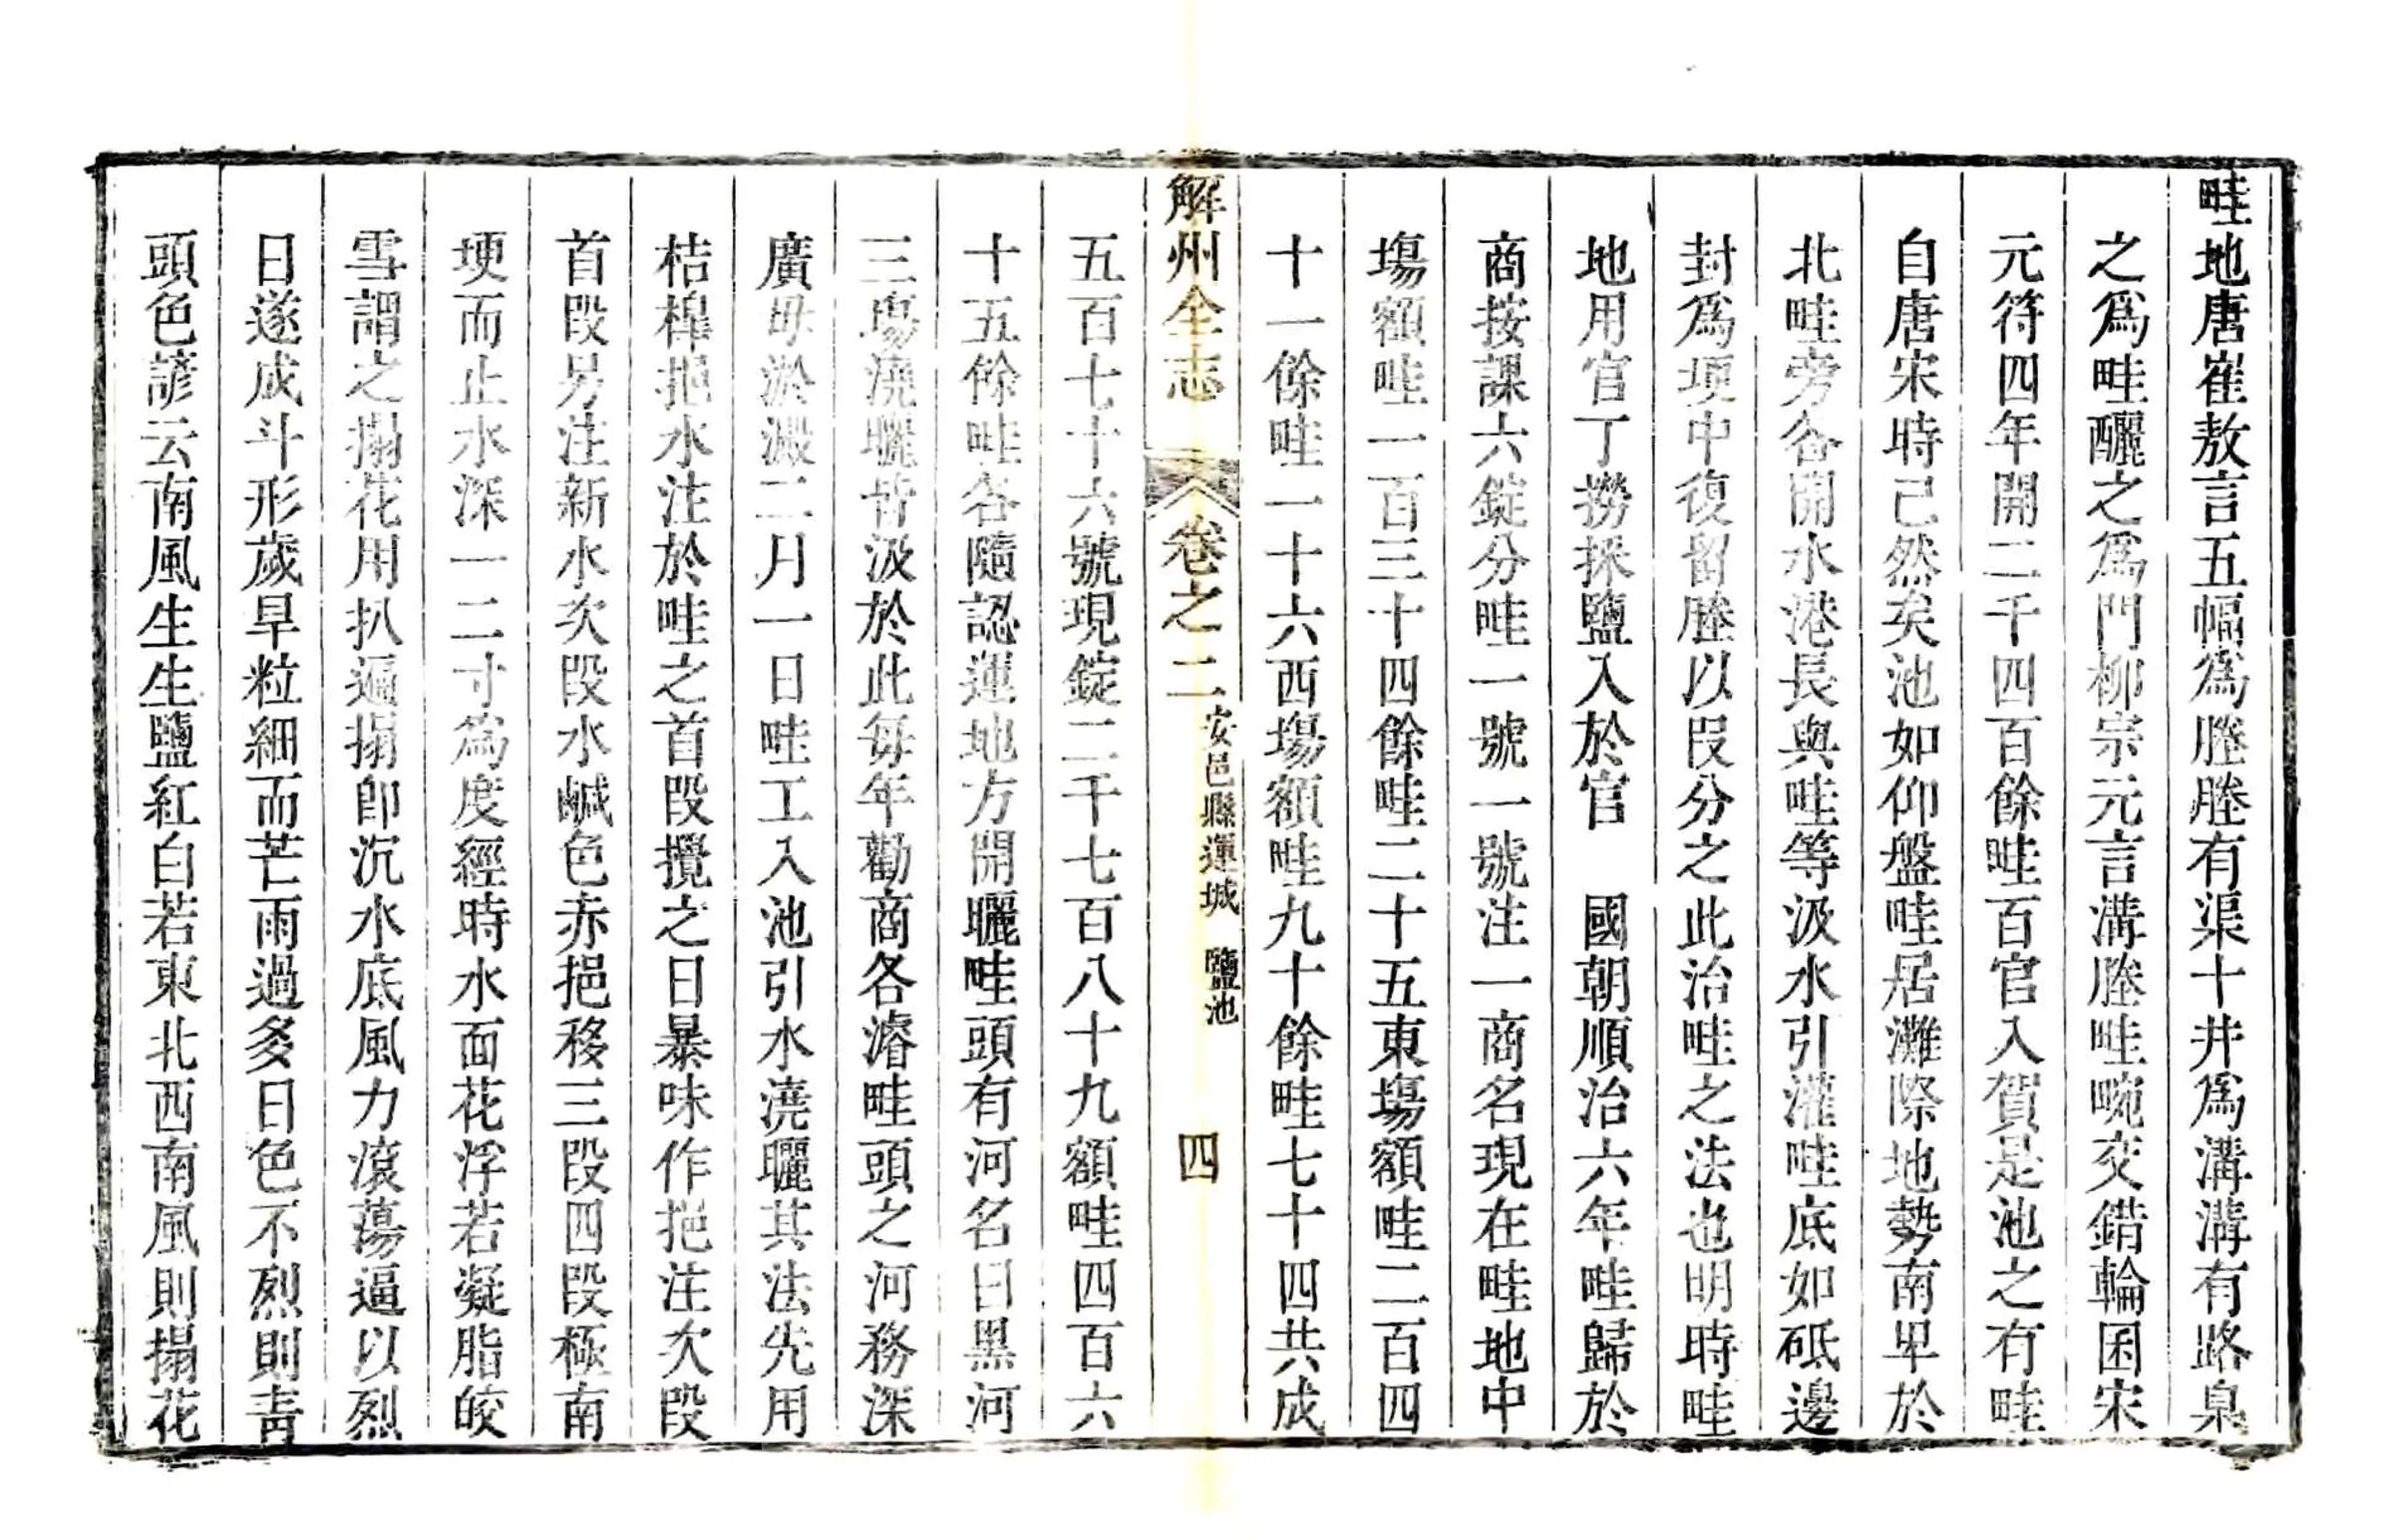 畦地唐崔敖言五幅爲塍塍有渠十井爲溝溝有路臬
之爲畦釃之爲門柳宗元言溝塍畦畹交錯輪囷宋
元符四年開二千四百餘畦百官入賀是池之有畦
自唐宋時已然矣池如仰盤畦居灘際地勢南卑於
北畦旁各開水港長與畦等汲水引灌畦底如砥邊
封爲埂中復留塍以段分之此治畦之法也明時畦
地用官丁撈採鹽入於官　國朝順治六年畦歸於
商按課六錠分畦一號一號注一商名現在畦地中
場額畦一百三十四餘畦二十五東場額畦二百四
十一餘畦一十六西場額畦九十餘畦七十四共成
解州全志　卷之二　安邑縣運城　鹽池　四
五百七十六號現錠二千七百八十九額畦四百六
十五餘畦各隨認運地方開曬畦頭有河名曰黑河
三場澆曬皆汲於此每年勸商各濬畦頭之河務深
廣毋淤澱二月一日畦工入池引水澆曬其法先用
桔槔挹水注於畦之首段攪之日暴味作挹注次段
首段另注新水次段水鹹色赤挹移三段四段極南
埂而止水深一二寸爲度經時水面花浮若凝脂皎
雪謂之搨花用扒遍搨卽沉水底風力滾蕩逼以烈
日遂成斗形歲旱粒細而芒雨過多日色不烈則青
頭色諺云南風生生鹽紅白若東北西南風則搨花